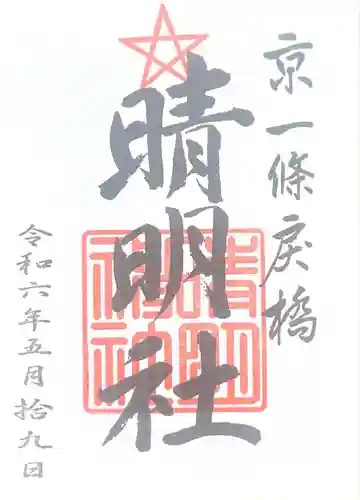 京一條戻橋
晴明社
令和六年五月拾九日